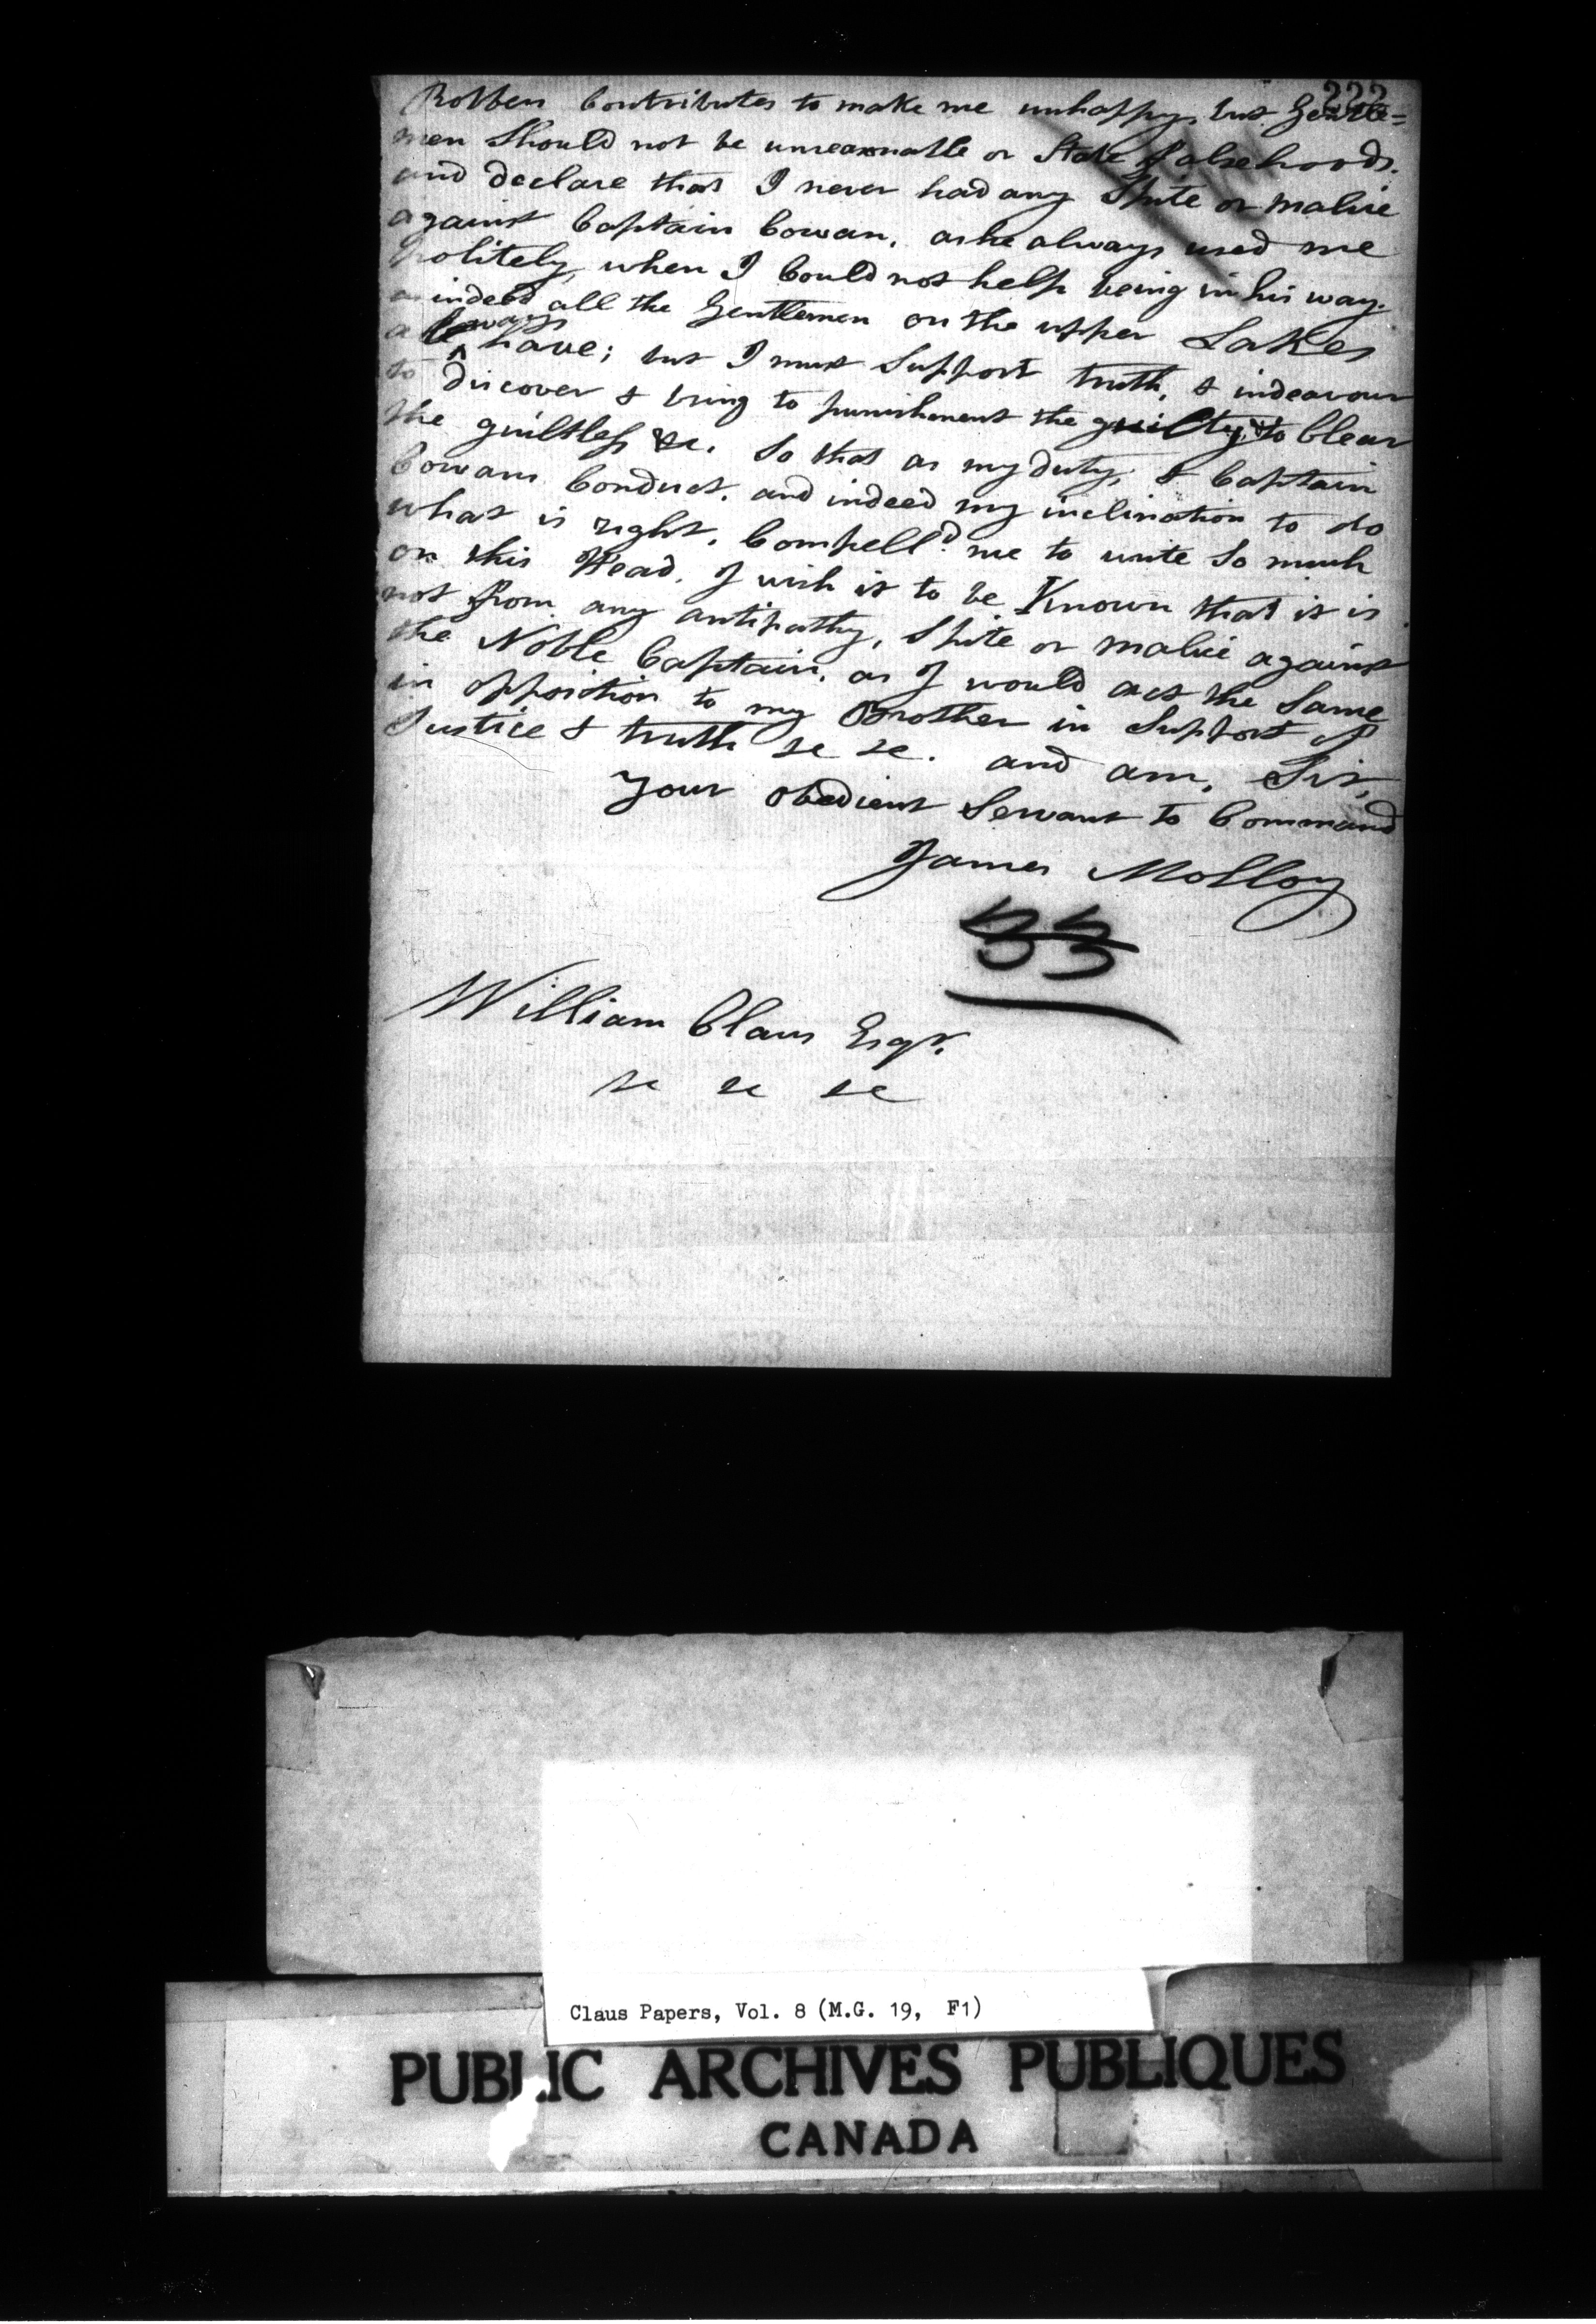 222
Robben Contributes to make me unhappy, but Gentle=
men Should not be unreasonable or State falsehoods.
and declare that I never had any Spite or malice
against Captain Cowan, as he always used me
politely, when I Could not help being in his way.
as indeed all the Gentlemen on the upper Lakes
always have; but I must Support truth, & indeavour
to discover & bring to punishment the guilty, & to Clear
the guiltless &c. So that as my duty, & Captain
Cowans Conduct, and indeed my inclination to do
what is right, Compell'd me to write So much
on this Head, I wish it to be Known that it is
not from any antipathy, Spite or malice against
the Noble Captain, as I would act the Same
in opposition to my Brother in Support of
Justice & truth &c &c. and am, Sir,
Your obedient Servant to Command
James Molloy
33
William Claus Esqr.
&c &c &c
Claus Papers, Vol. 8 (M.G. 19, F1)
PUBLIC ARCHIVES PUBLIQUES
CANADA